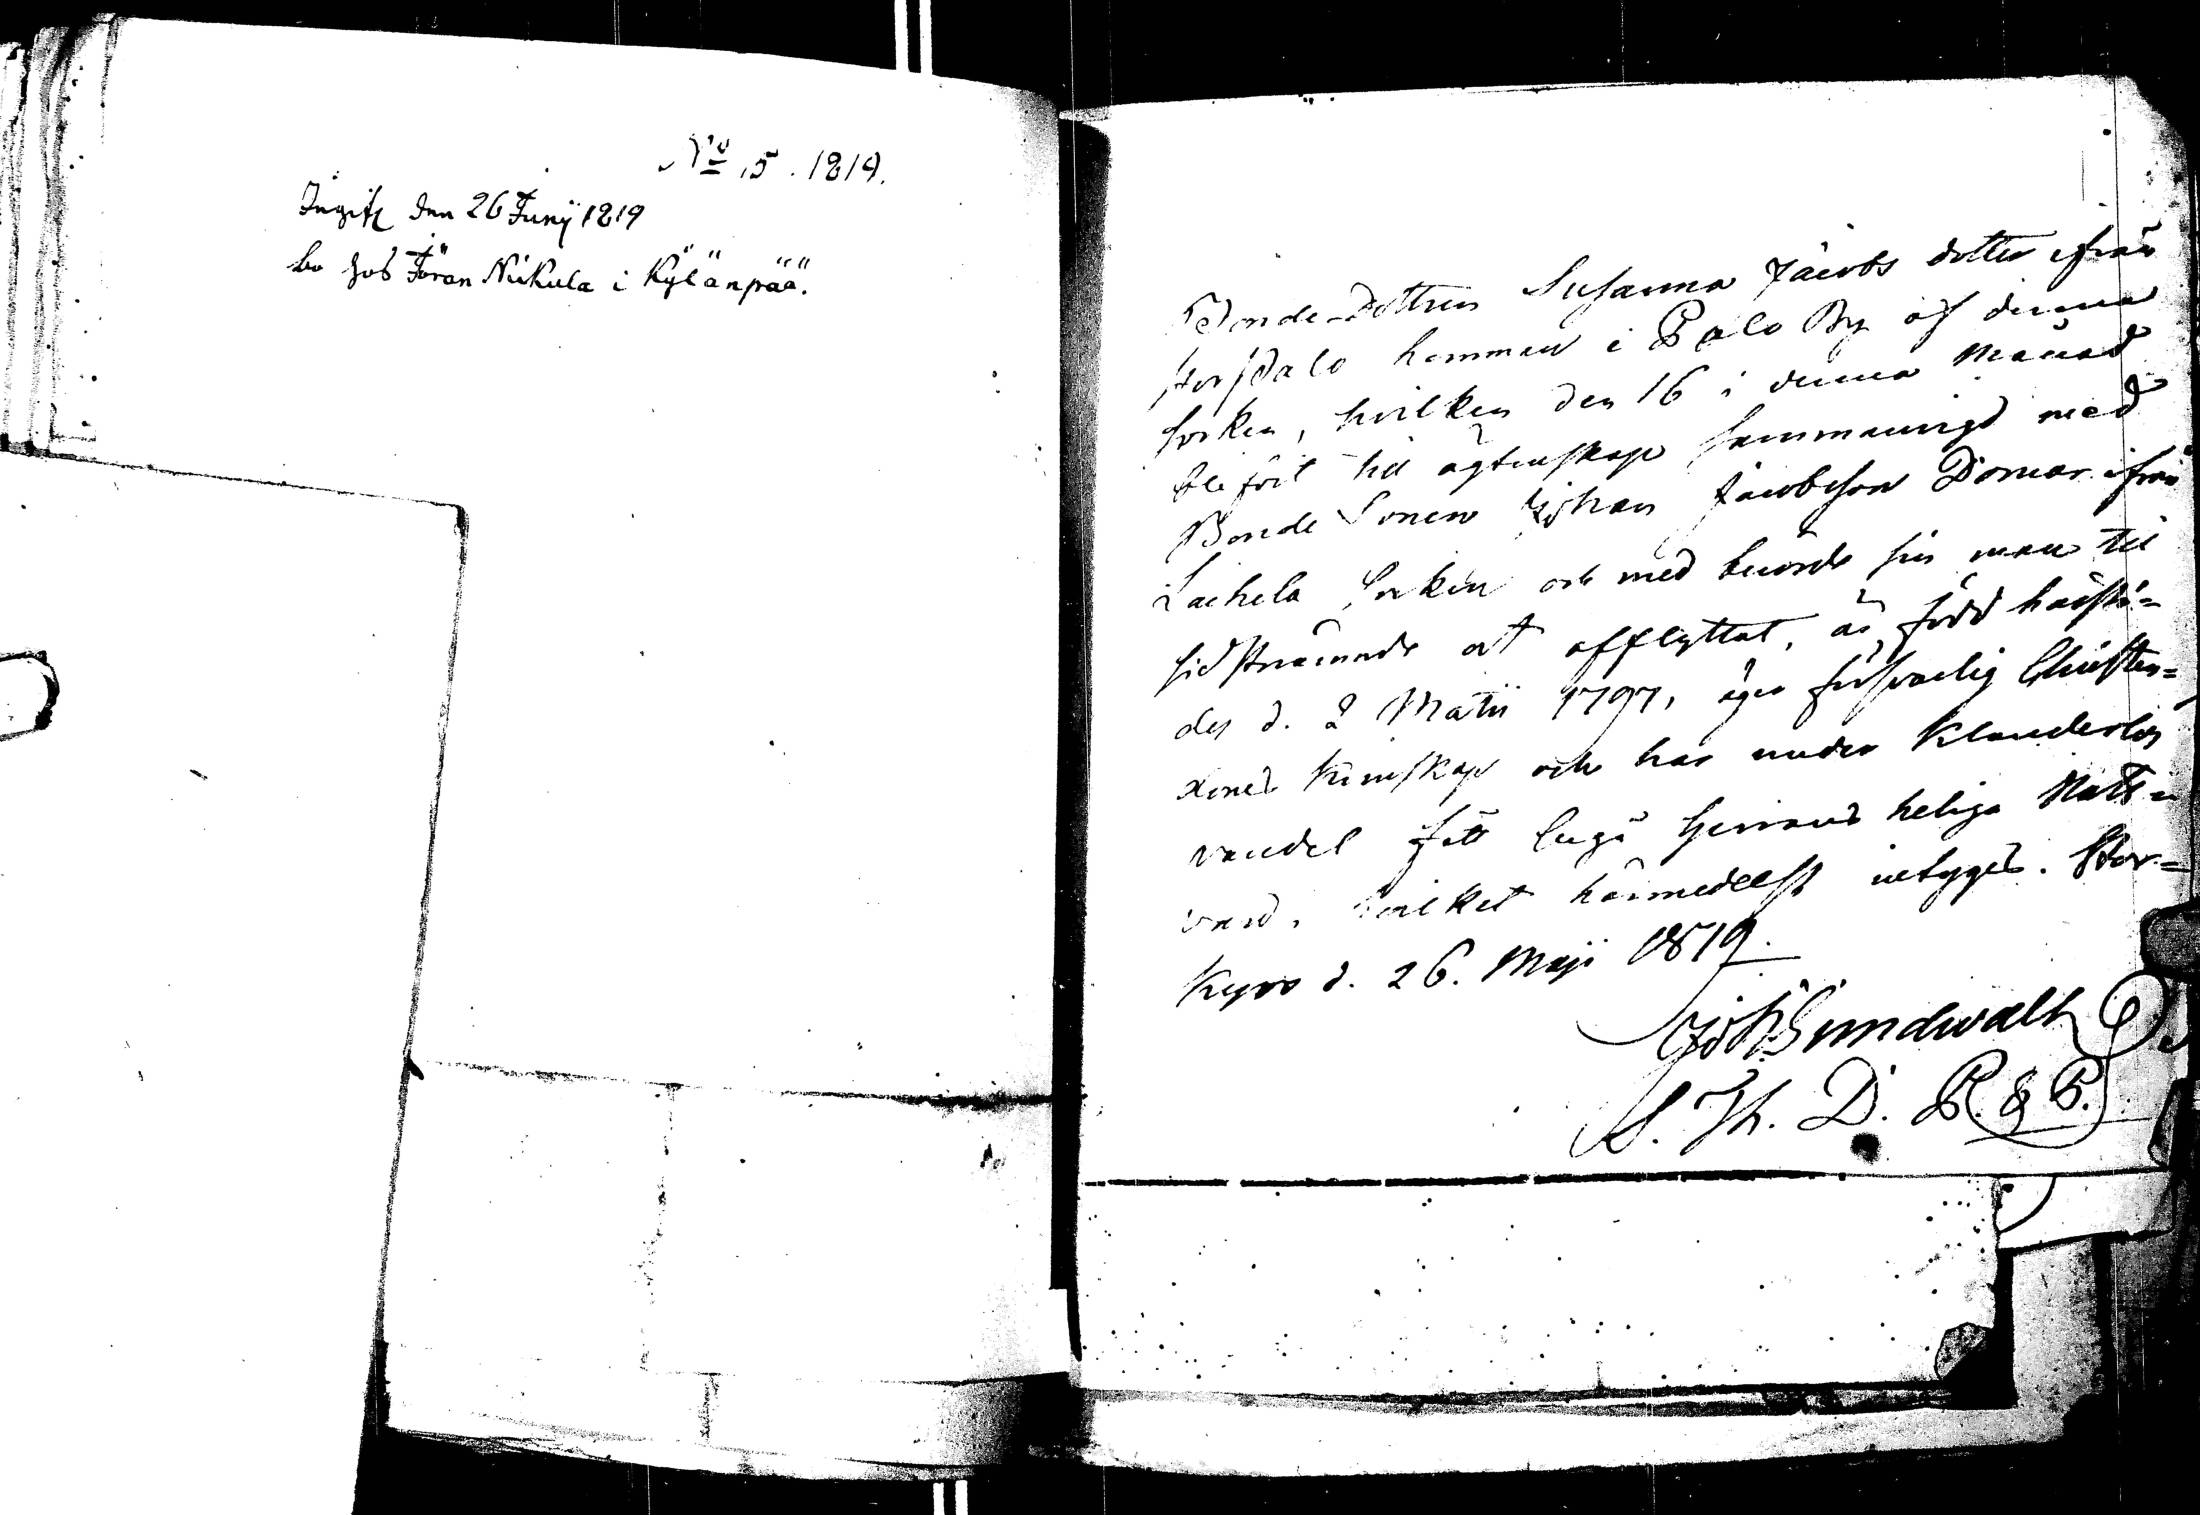 No 15. 1819.
Ingift den 26 Junij 1819
bo hos Jöran Niikula i Kylänpää.
Bonde-Dottren Susanna Jacobs dotter ifrån
Storpalo hemman i Palo By af denna
Socken, hvilken den 16 i denna månad
blefvit til ägtenskap sammanvigd med
Bonde Sonen Johan Jacobsson Domar ifrån
Laihela Socken och med berörde sin man til
sidstnämnde ort afflyttat, är född härstä=
des d. 2 Martii 1797, äger försvarlig Christen=
doms kunskap och har under klanderlös
vandel fått begå Herrans heliga Natt=
vard, hvilket härmedelst betygas. Stor=
kyro d. 26. Maji 1819.
Joh. Sundwall
S. Th. D. P. & P.